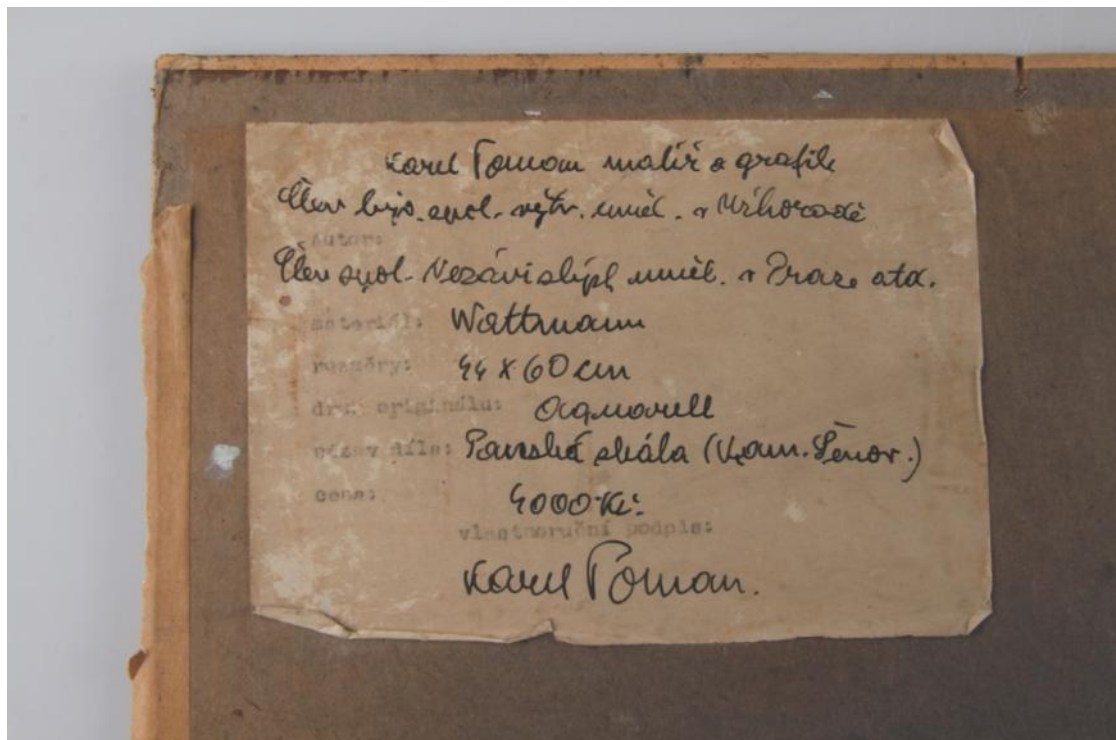 Karel Toman malíř a grafik
Člen býv. spol. výtv. uměl. v Užhorodě
Autor:
Člen spol. Nezávislých uměl. v Praze atd.
materiál: Wattmann
rozměry: 44 x 60 cm
druh originálu: Aquarell
název díla: Panská skála (Kam. Šenov.)
cena: 4000 Kč.
vlastnoruční podpis:
Karel Toman.